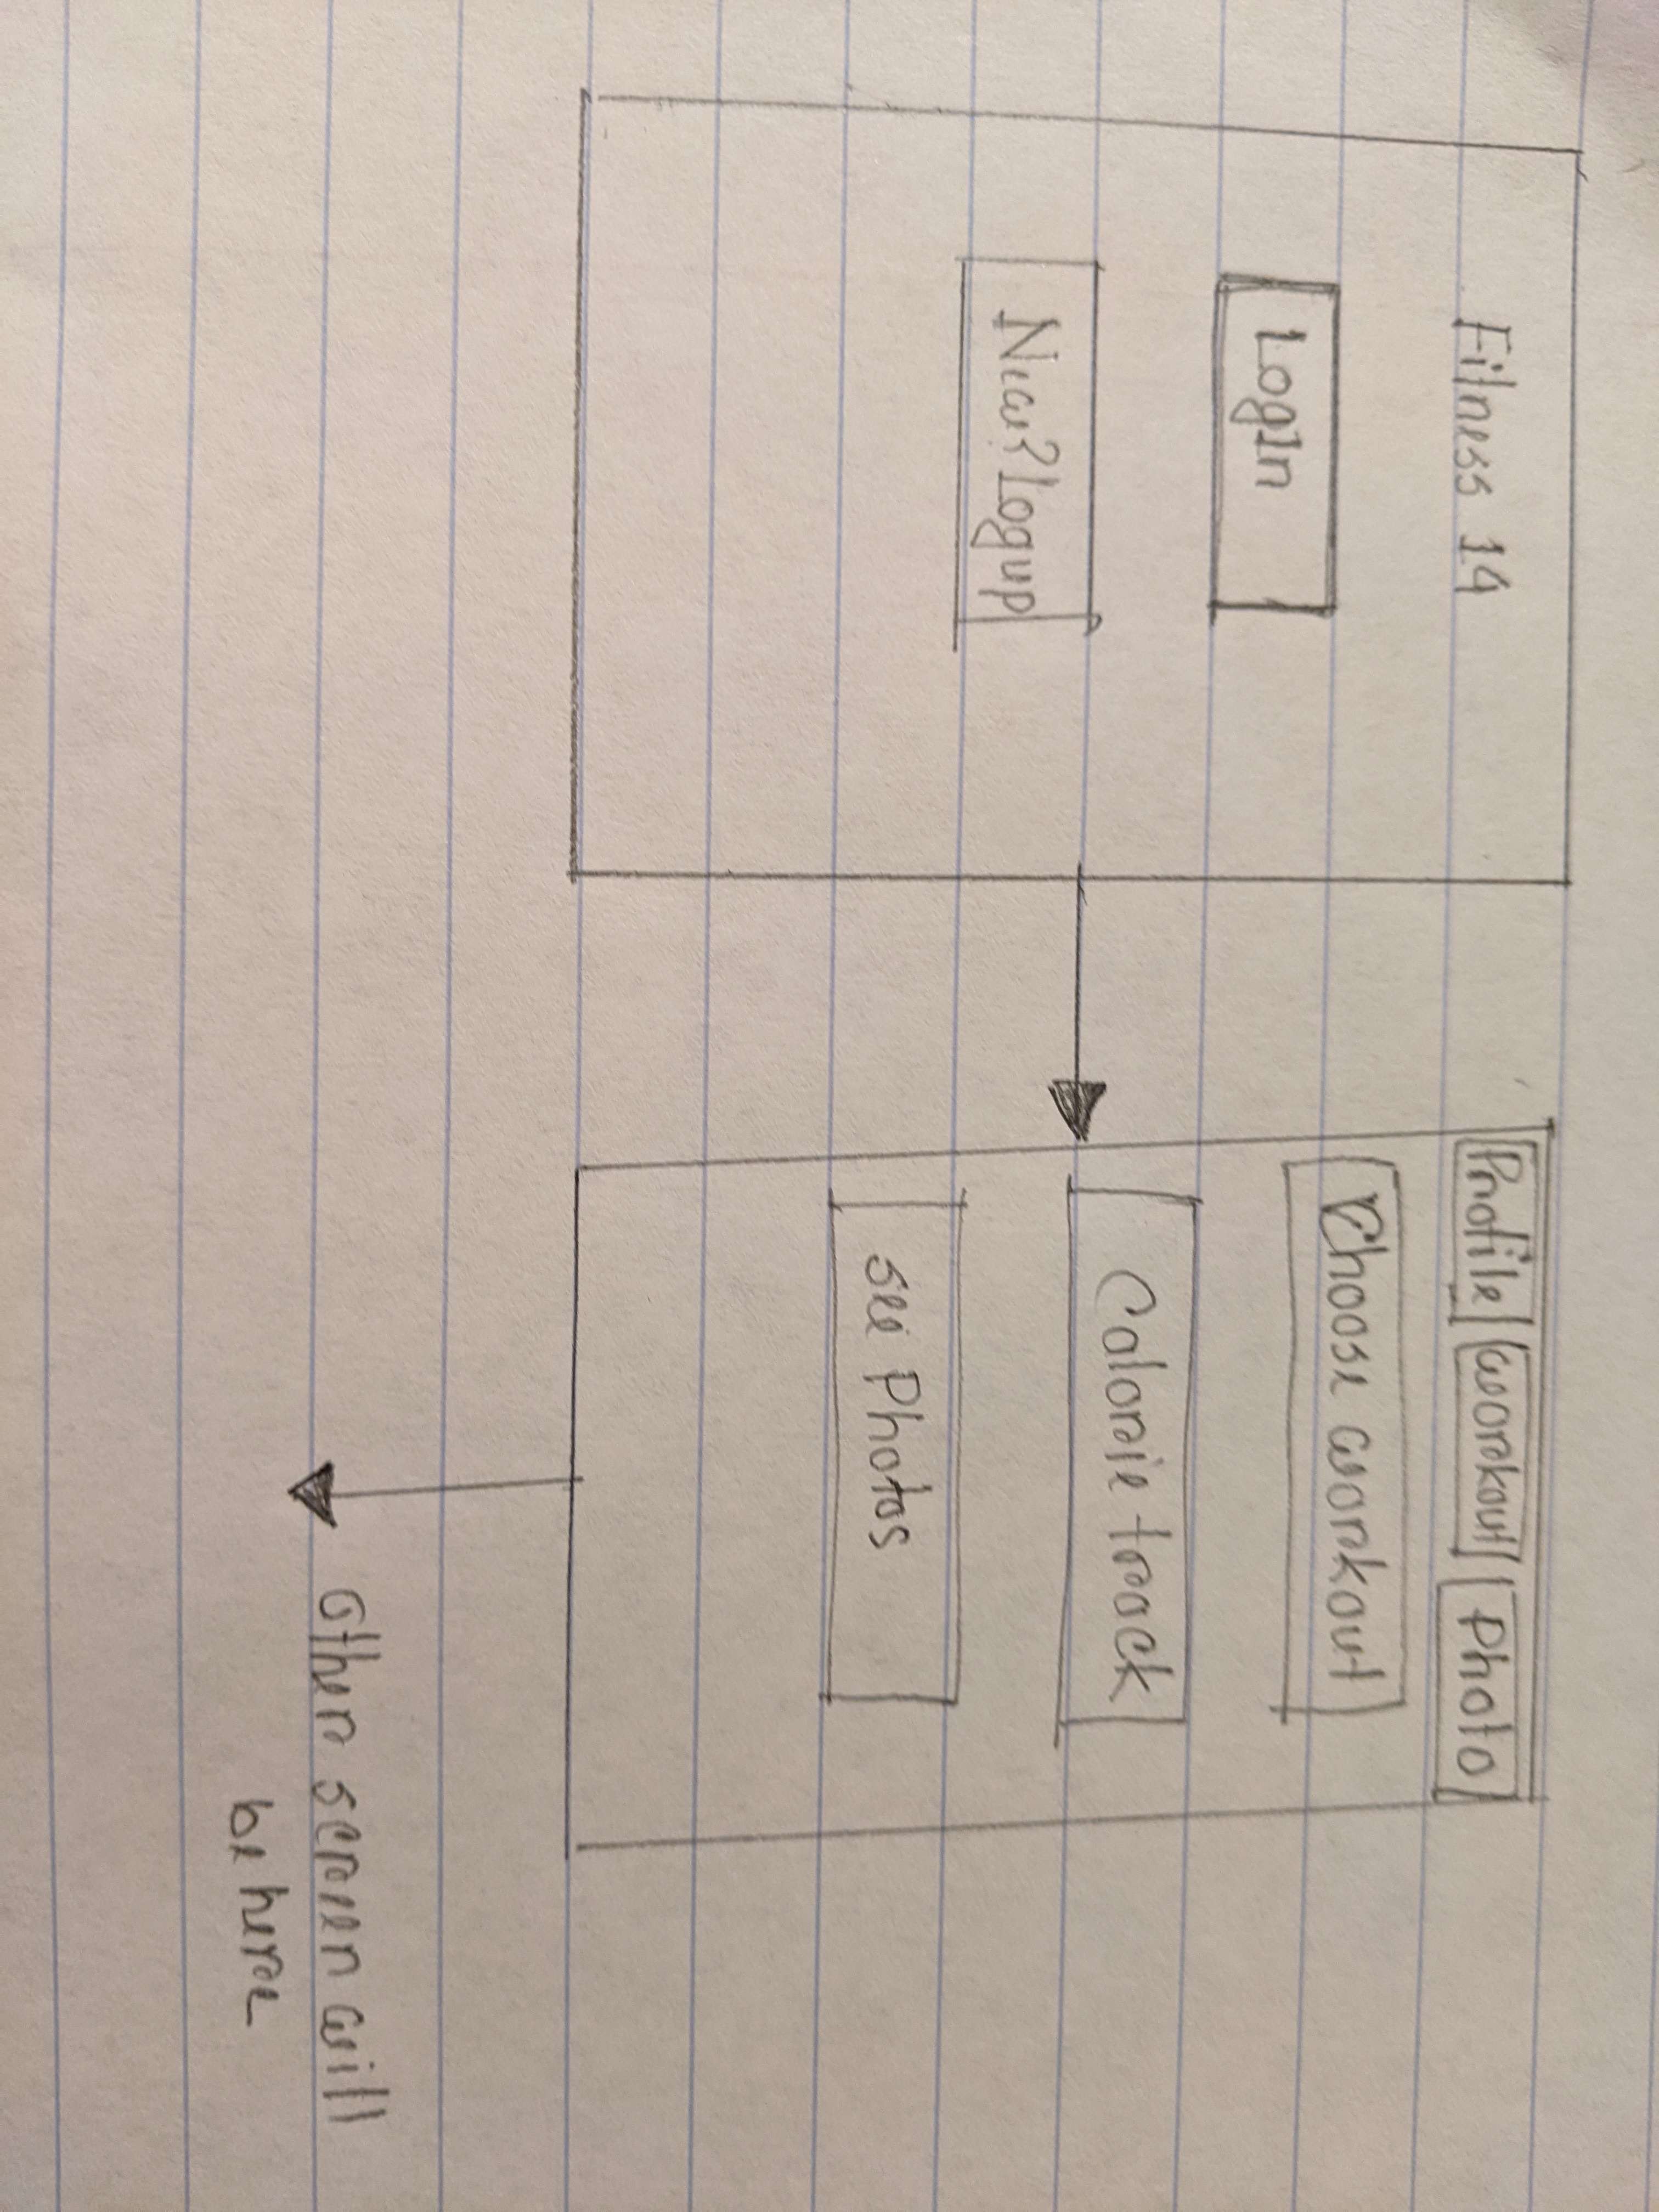 Fitness 14
LogIn
New? Logup
Profile Workout Photo
Choose workout
Calorie track
see Photos
Other screen will
be here